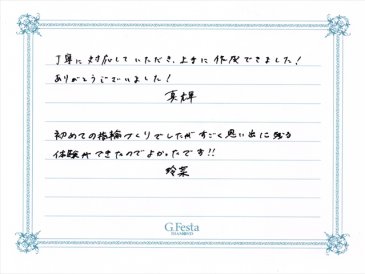 丁寧に対応していただき、上手に作成できました!
ありがとうございました!
真輝
初めての指輪づくりでしたがすごく思い出に残る
体験ができたのでよかったです!!
玲菜
G.Festa
DIAMOND